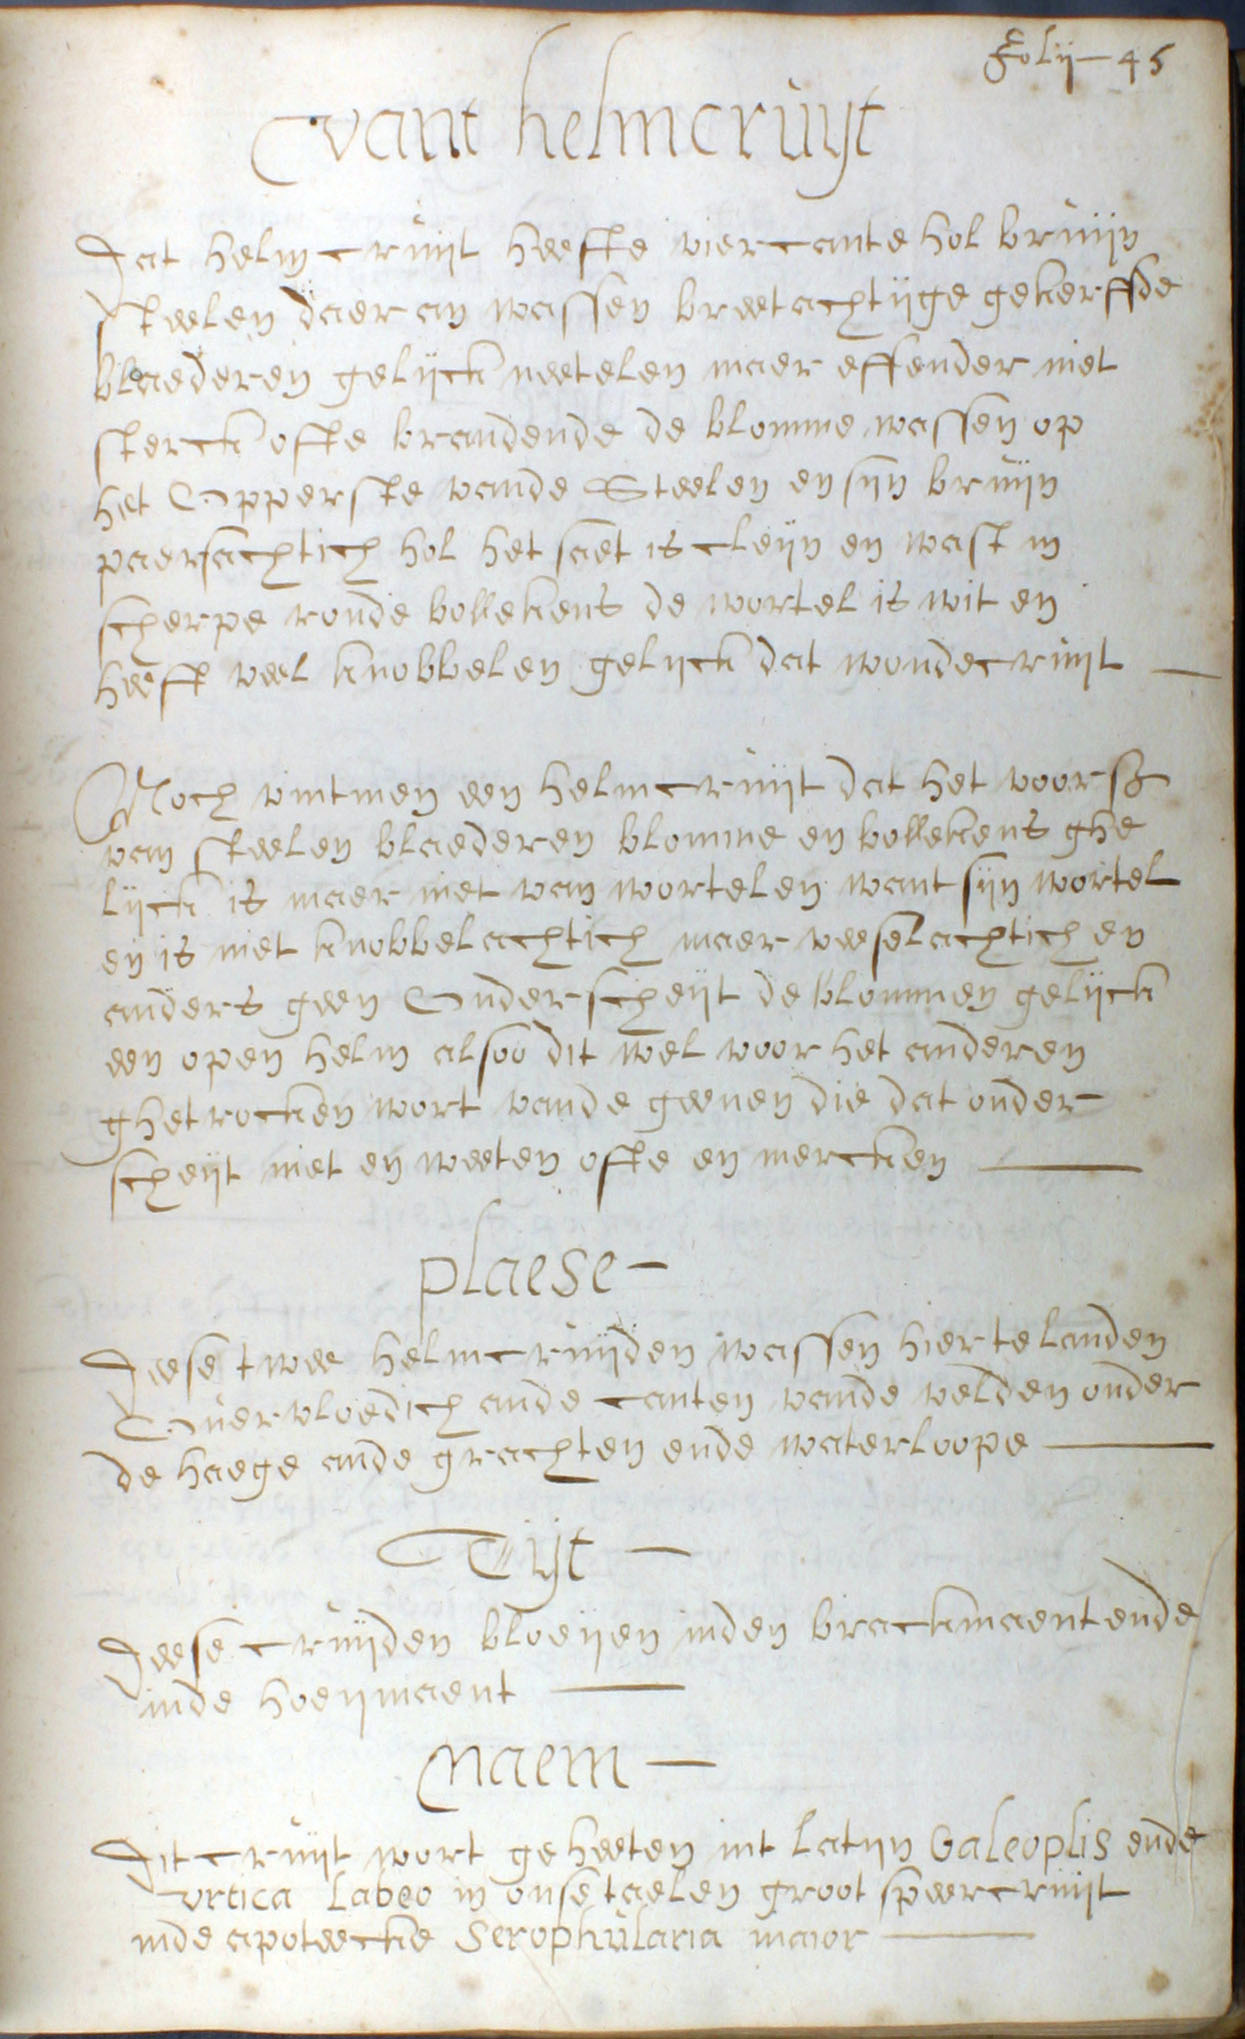 Folij - 45
vant helmcruijt
Dat helmcruijt heefte viercante hol bruijn
steelen daer an wassen breetachtijge gekerffde
blaederen gelijck neetelen maer effender niet
sterck ofte brandende de blomme wassen op
het Opperste vande Steelen en sijn bruijn
paersachtich hol het saet is cleijn en wast in
scherpe ronde bollekens de wortel is wit en
heeft veel knobbelen gelijck dat wondecruijt —
Noch vintmen een helmcruijt dat het voors
van steelen blaederen blomme en bollekens ghe
lijck is maer niet van wortelen want sijn wortel
en is niet knobbelachtich maer veeselachtich en
anders geen Onderscheijt de blommen gelijck
een open helm alsoo dit wel voor het anderen
ghetrocken wort vande geenen die dat onder
scheijt niet en weeten ofte en mercken —
plaese —
Deese twee helmcruijden wassen hier te landen
Overvloedich ande canten vande velden onder
de haege ande grachten ende waterloope —
Tijt —
Deese cruijden bloeijen inden brackmaent ende
inde hoeijmaent —
Naem —
Dit cruijt wort geheeten int latijn Galeoplis ende
vrtica Labeo in onse taelen groot speercruijt
inde apoteecke Serophularia maior —